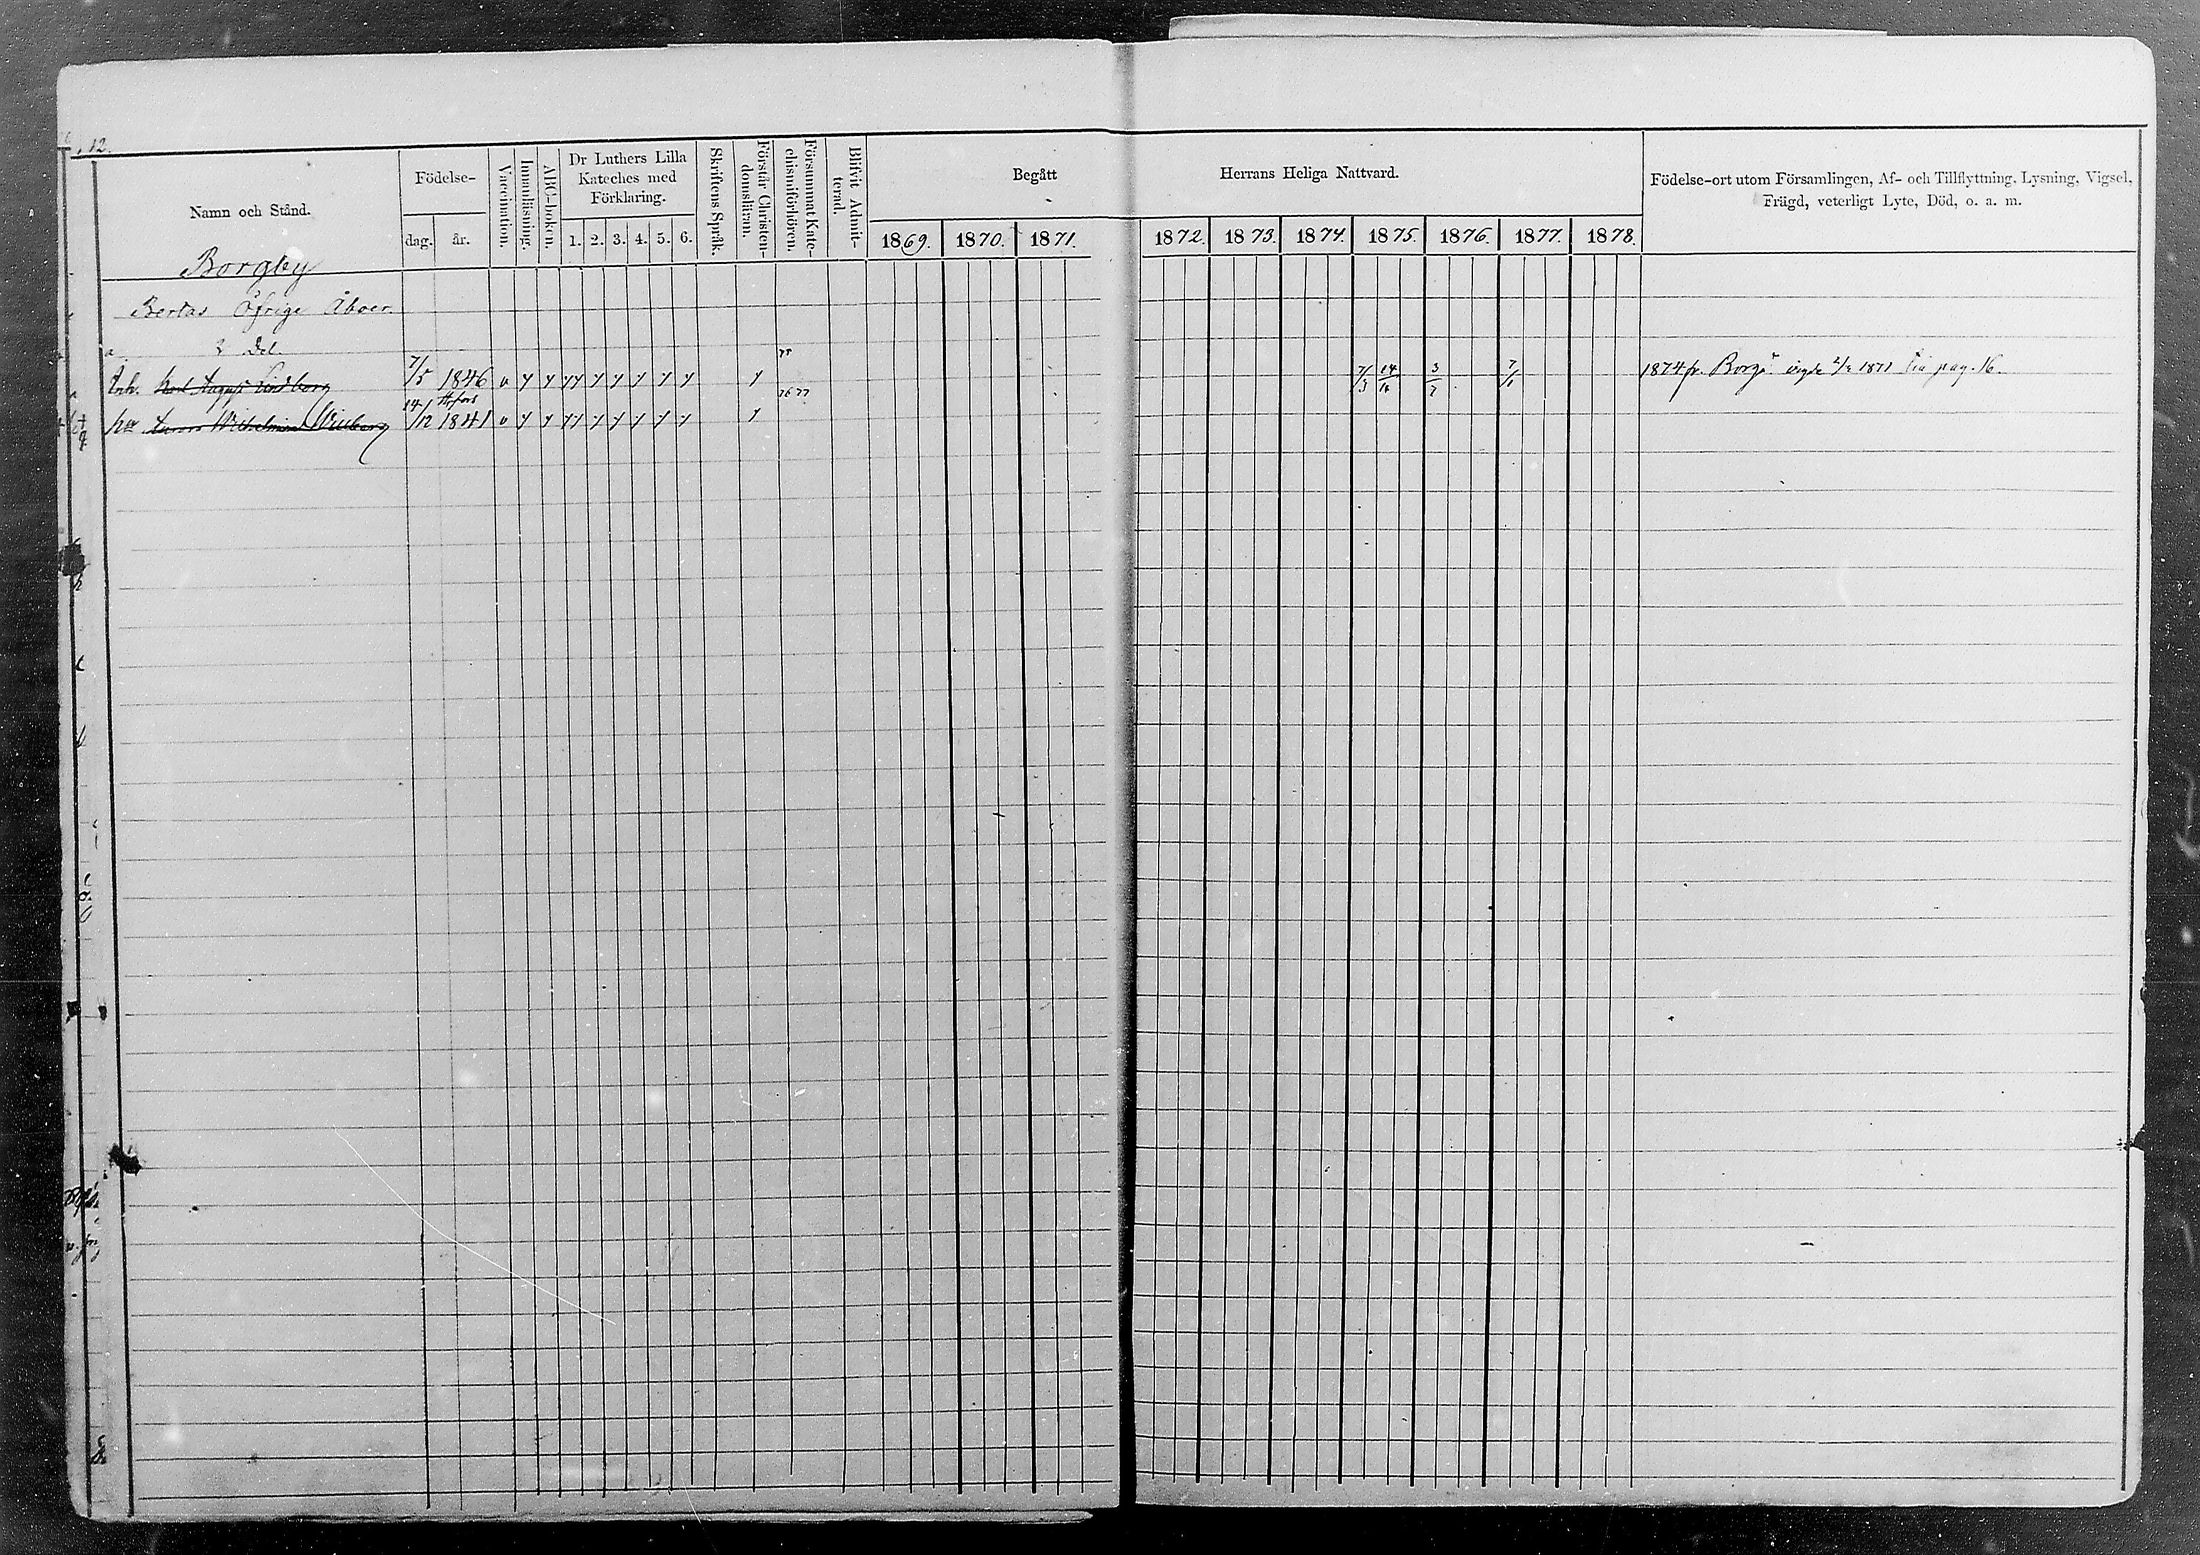 12.
Namn och Stånd.
Födelse-
dag. år.
Vaccination.
Innanläsning.
ABC-boken.
Dr Luthers Lilla
Kateches med
Förklaring.
1. 2. 3. 4. 5. 6.
Skriftens Språk.
Förstår Christen-
domsläran.
Försummat Kate-
chismiförhören.
Blifvit Admit-
terad.
Begått Herrans Heliga Nattvard.
1869. 1870. 1871. 1872. 1873. 1874. 1875. 1876. 1877. 1878.
Födelse-ort utom Församlingen, Af- och Tillflyttning, Lysning, Vigsel,
Frägd, veterligt Lyte, Död, o. a. m.
Borgby
Bertas Öfrige Åboer.
2 Del.
7/5 1846 v y y y y y y y y y y 7/3 3/7 7/1 1874 fr. Borgå vigde 1871 pag. 16.
H:fors
76 77
h:u Wilhelmina Wiberg 14/12 1841 v y y y y y y y y y y